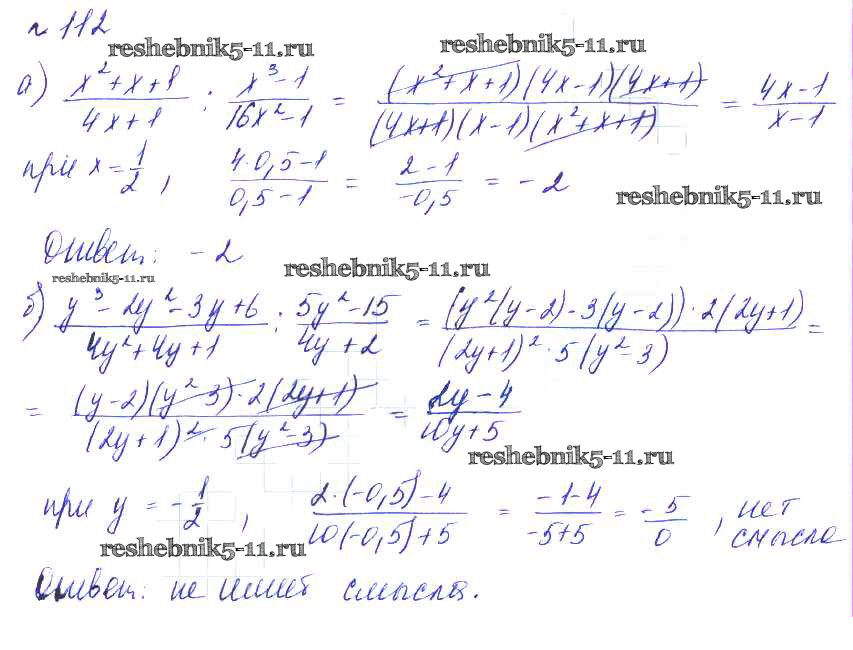 № 112
reshebnik5-11.ru reshebnik5-11.ru
а) (x²+x+1)/(4x+1) : (x³-1)/(16x²-1) = ((x²+x+1)(4x-1)(4x+1))/((4x+1)(x-1)(x²+x+1)) = (4x-1)/(x-1)
при x = 1/2, (4·0,5-1)/(0,5-1) = (2-1)/(-0,5) = -2
reshebnik5-11.ru
Ответ: -2
reshebnik5-11.ru reshebnik5-11.ru
б) (y³-2y²-3y+6)/(4y²+4y+1) : (5y²-15)/(4y+2) = ((y²(y-2)-3(y-2))·2(2y+1))/((2y+1)²·5(y²-3)) =
= ((y-2)(y²-3)·2(2y+1))/((2y+1)²·5(y²-3)) = (2y-4)/(10y+5)
reshebnik5-11.ru
при y = -1/2, (2·(-0,5)-4)/(10(-0,5)+5) = (-1-4)/(-5+5) = -5/0, нет смысла
reshebnik5-11.ru
Ответ: не имеет смысла.